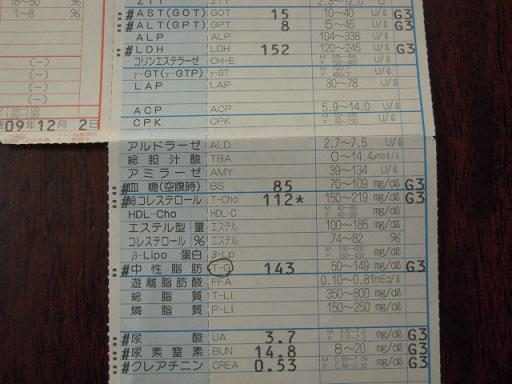 18～50 %
1～8 %
(-)
(-)
(-)
(-)
09年12月 2日
ZTT ZTT 2.3～12.0 U
#AST(GOT) GOT 15 10～40 U/ℓ G3
#ALT(GPT) GPT 8 5～45 U/ℓ G3
ALP ALP 104～338 U/ℓ
#LDH LDH 152 120～245 U/ℓ G3
コリンエステラーゼ CH-E U/ℓ
γ-GT(γ-GTP) γ-GT U/ℓ
LAP LAP 30～78 U/ℓ
ACP ACP 5.9～14.0 U/ℓ
CPK CPK U/ℓ
アルドラーゼ ALD 2.7～7.5 U/ℓ
総胆汁酸 TBA 0～14.4μmol/ℓ
アミラーゼ AMY 39～134 U/ℓ
#血糖(空腹時) BS 85 70～109 mg/dℓ G3
#総コレステロール T-Cho 112* 150～219 mg/dℓ G3
HDL-Cho HDL-C mg/dℓ
エステル型 量 エステル 100～185 mg/dℓ
コレステロール % エステル 74～82 %
β-Lipo 蛋白 β-Lp mg/dℓ
#中性脂肪 T-G 143 50～149 mg/dℓ G3
遊離脂肪酸 FFA 0.10～0.81mEq/ℓ
総脂質 T-Li 350～800 mg/dℓ
燐脂質 P-Li 150～250 mg/dℓ
#尿酸 UA 3.7 mg/dℓ G3
#尿素窒素 BUN 14.8 8～20 mg/dℓ G3
#クレアチニン CREA 0.53 mg/dℓ G3